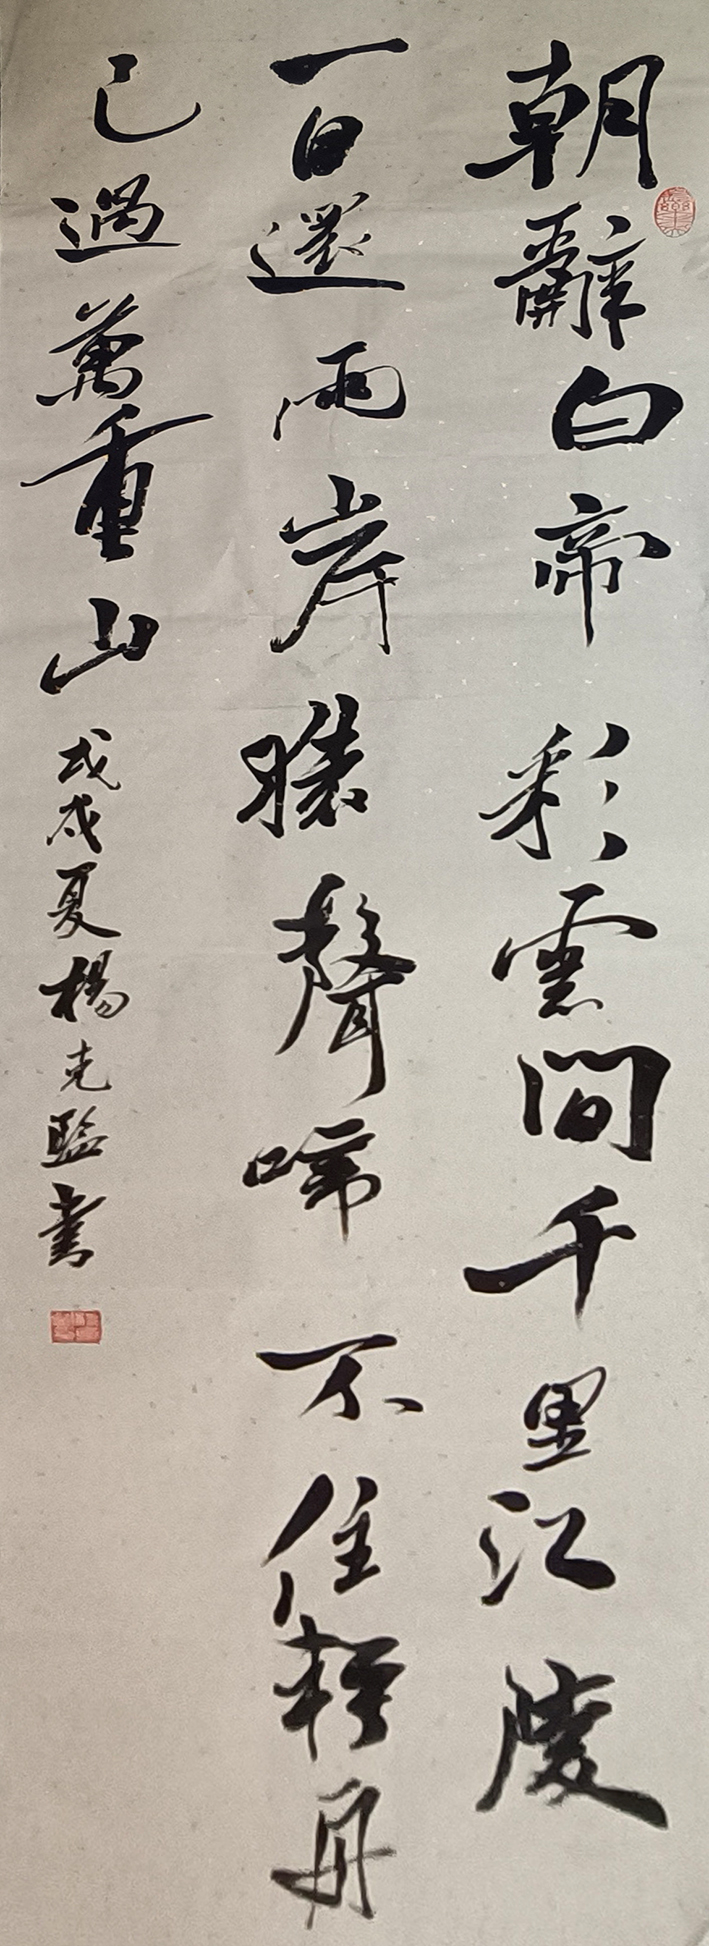 朝辭白帝彩雲間千里江陵
一日還兩岸猿聲啼不住輕舟
已過萬重山戊戌夏楊克書